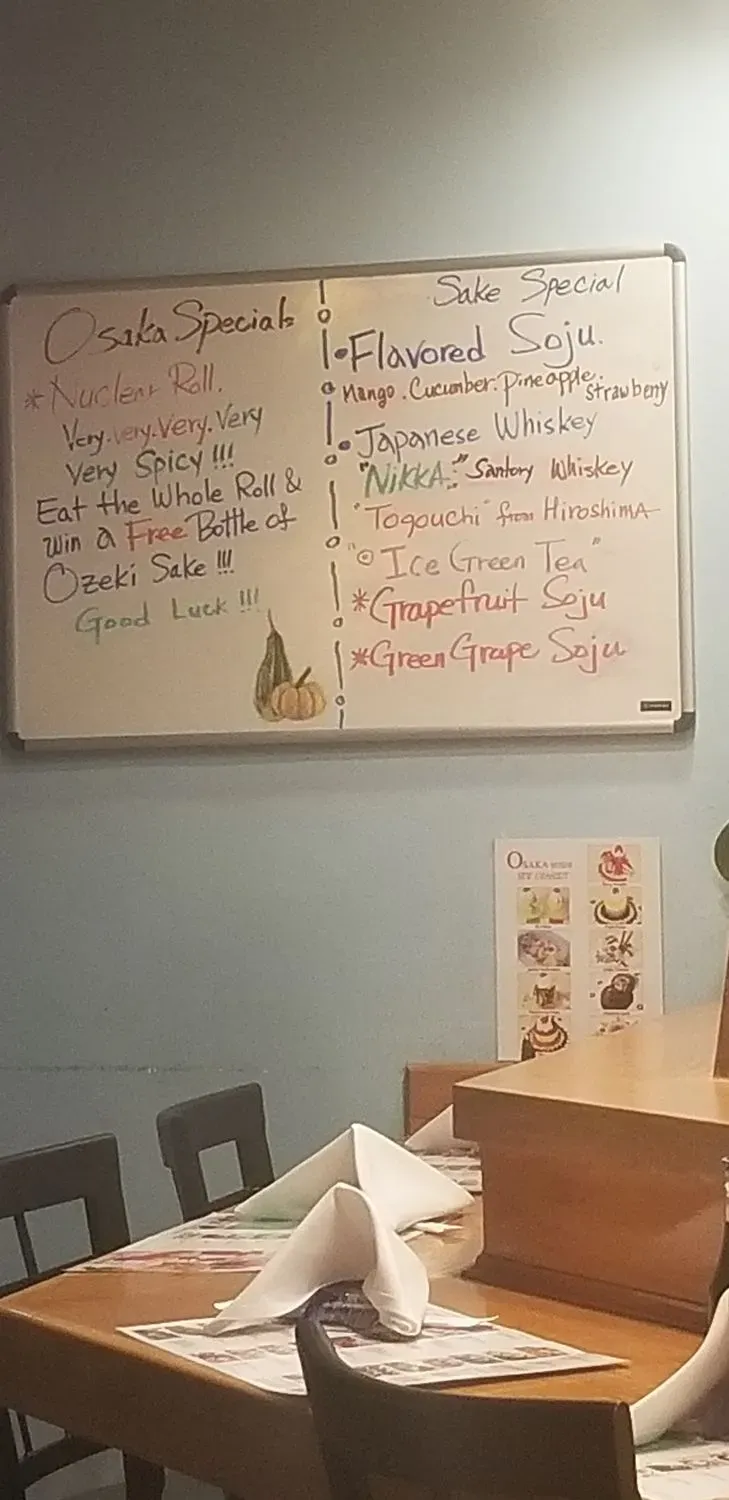 Osaka Specials
*Nuclear Roll.
Very.very.Very.Very
Very Spicy !!!
Eat the Whole Roll &
Win a Free Bottle of
Ozeki Sake !!!
Good Luck !!!
Sake Special
•Flavored Soju.
Mango.Cucumber.Pineapple.Strawberry
•Japanese Whiskey
"NiKKA." Santory Whiskey
"Togouchi" from HiroshimA
"Ice Green Tea"
*Grapefruit Soju
*Green Grape Soju
OSAKA